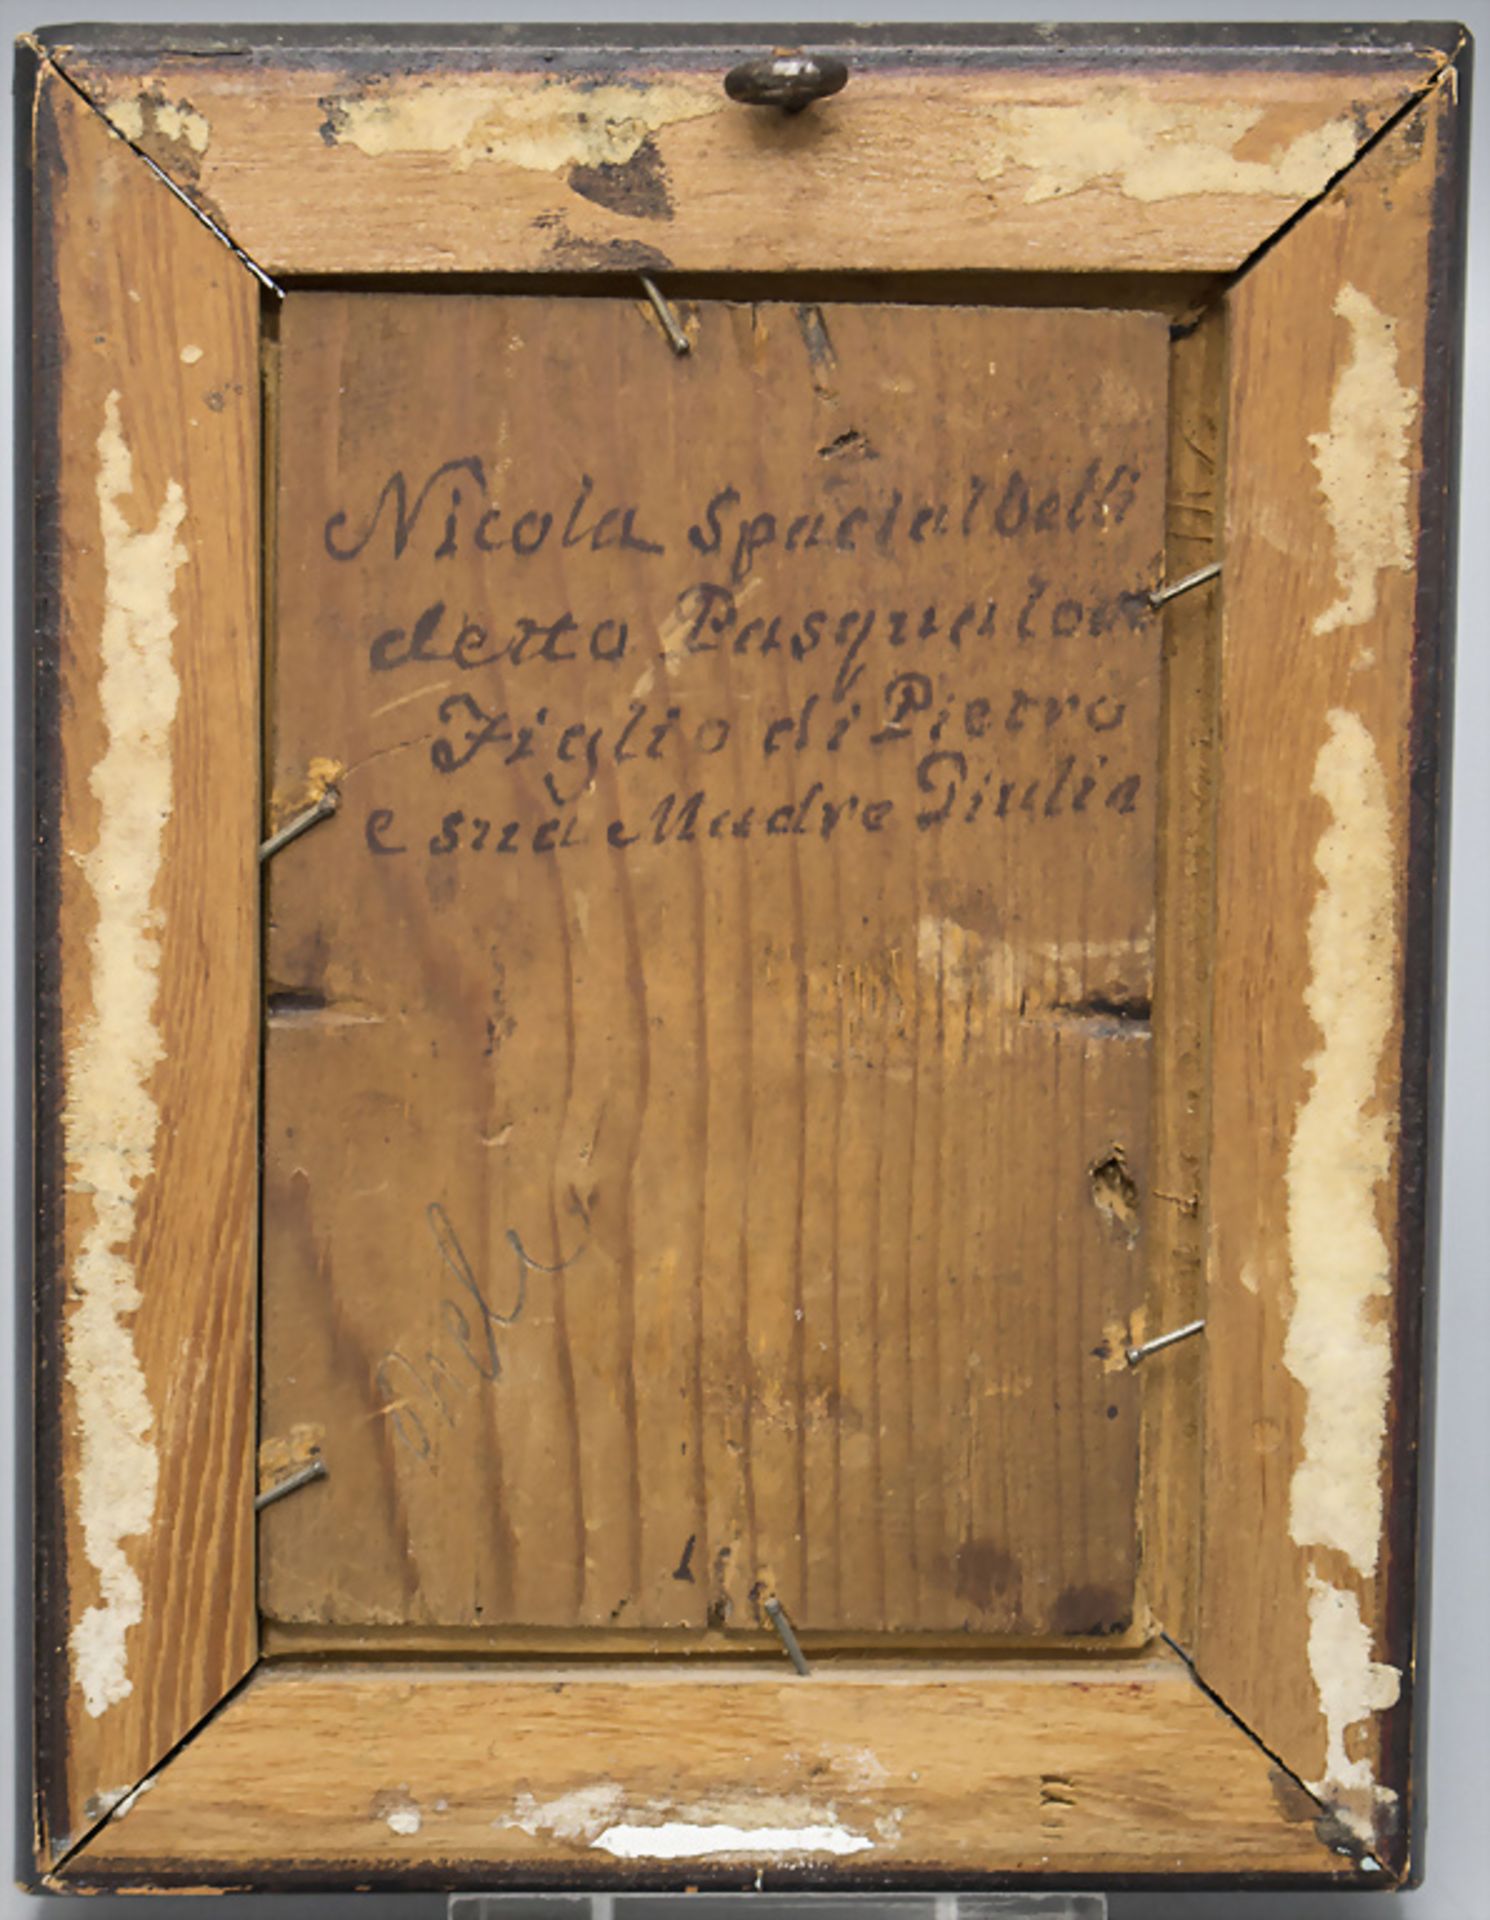 Nicola Spacialbelli
detto Pasqualone
Figlio di Pietro
e suà Madre Giulia